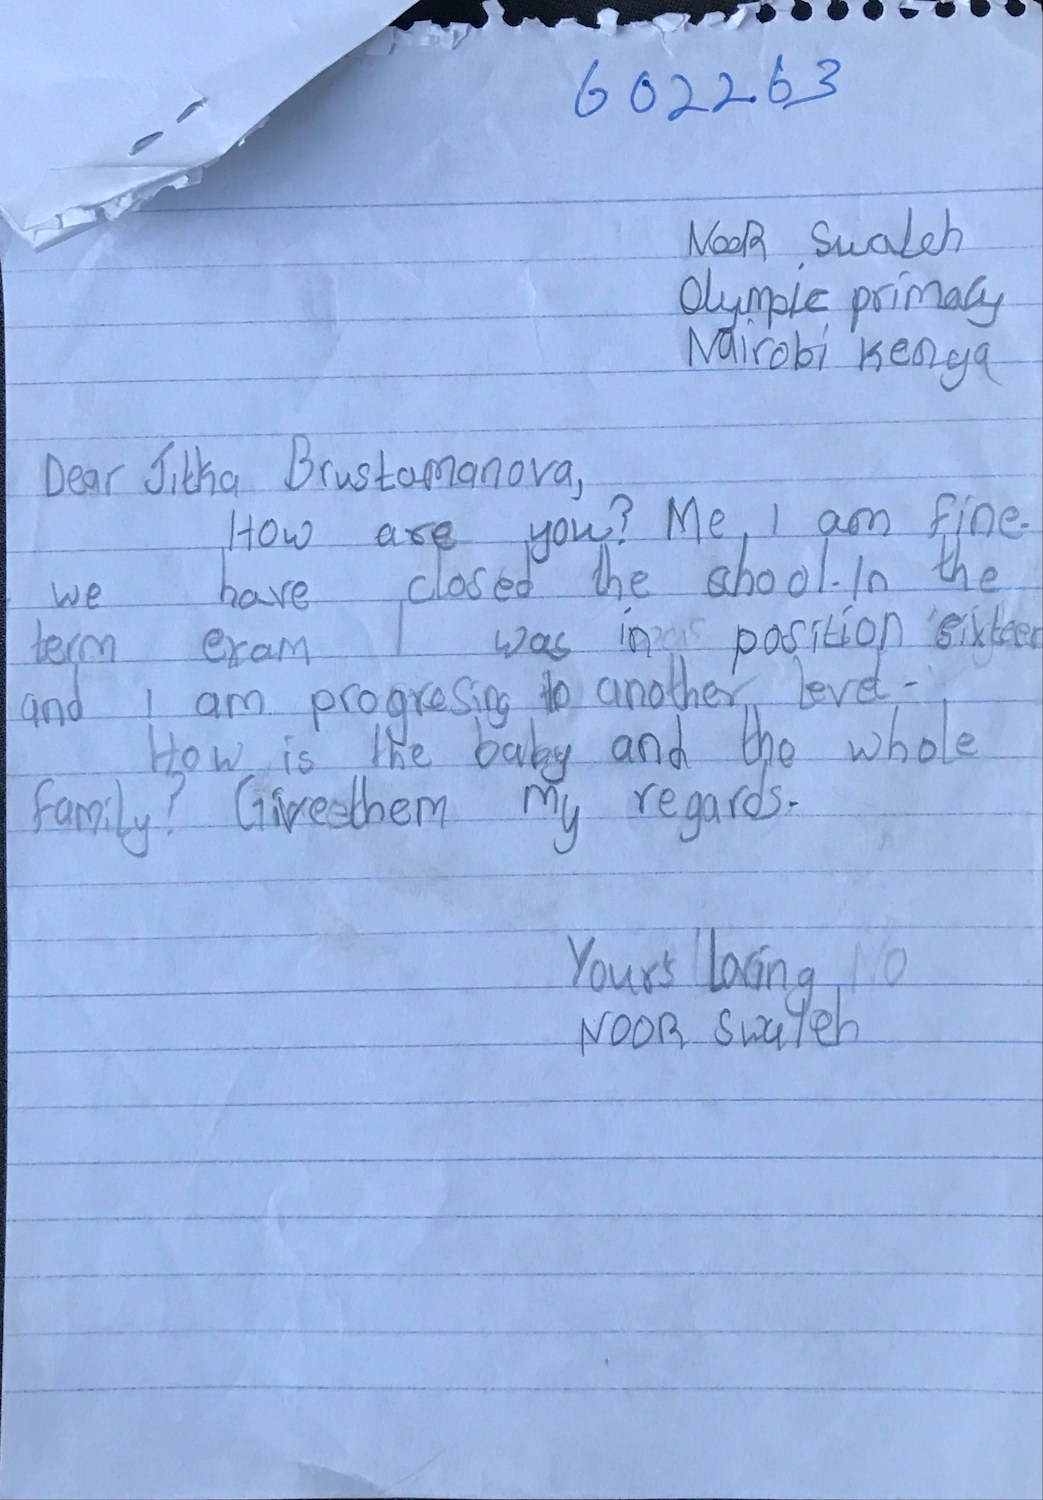 602263
NOOR Swaleh
Olympic primary
Nairobi Kenya
Dear Jitka Brustomanova,
How are you? Me, I am fine.
we have closed the shool. In the
term exam I was in position sixteen
and I am progresing to another level.
How is the baby and the whole
family? Give them my regards.
Yours loving NO
NOOR Swaleh